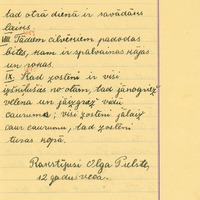 tad otrā dienā ir savādāks
laiks.
VIII Tādiem cilvēkiem padodas
bites, kam ir spalvainas kājas
un rokas.
IX. Kad zoslēni ir visi
izšķīlušās no olām, tad jānogriež
velēna un jāizgriež vidū
caurums; visi zoslēni jālaiž
caur caurumu, tad zoslēni
turas kopā.
Rakstījusi Olga
12 gadu veca.